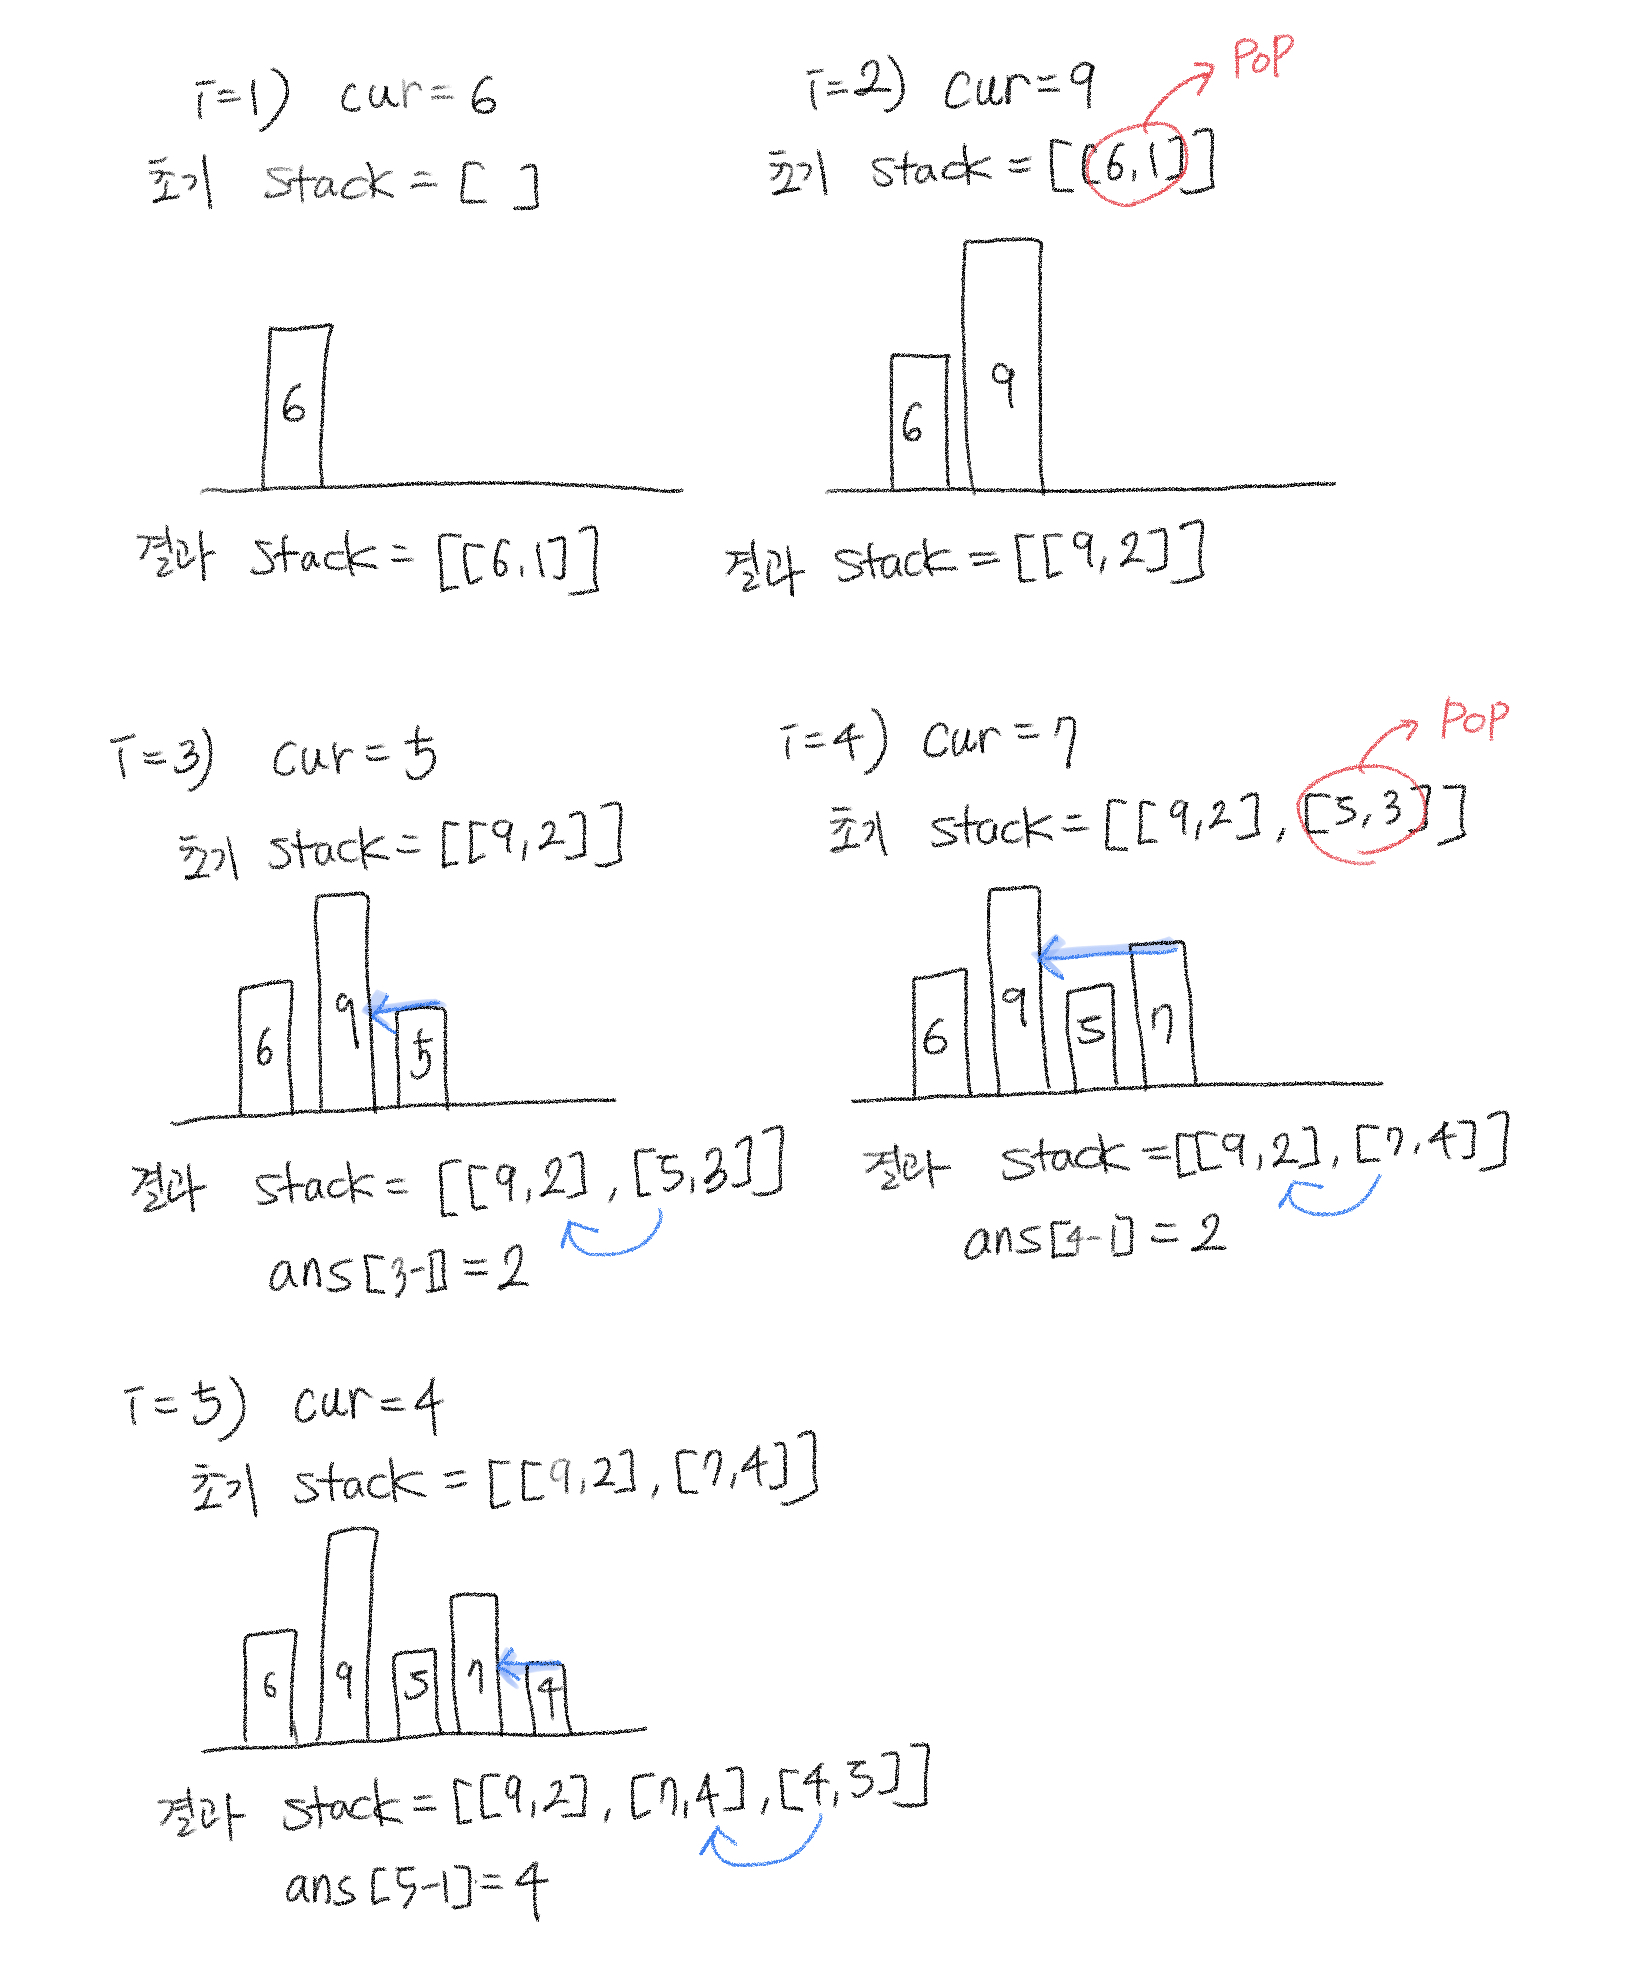 i=1) cur=6
초기 stack = [ ]
6
결과 stack = [[6,1]]
i=2) cur=9
POP
초기 stack = [[6,1]]
6 9
결과 stack = [[9,2]]
i=3) cur=5
초기 stack = [[9,2]]
6 9 5
결과 stack = [[9,2], [5,3]]
ans[3-1]=2
i=4) cur=7
POP
초기 stack = [[9,2], [5,3]]
6 9 5 7
결과 stack = [[9,2], [7,4]]
ans[4-1] = 2
i=5) cur=4
초기 stack = [[9,2], [7,4]]
6 9 5 7 4
결과 stack = [[9,2], [7,4], [4,5]]
ans[5-1]=4